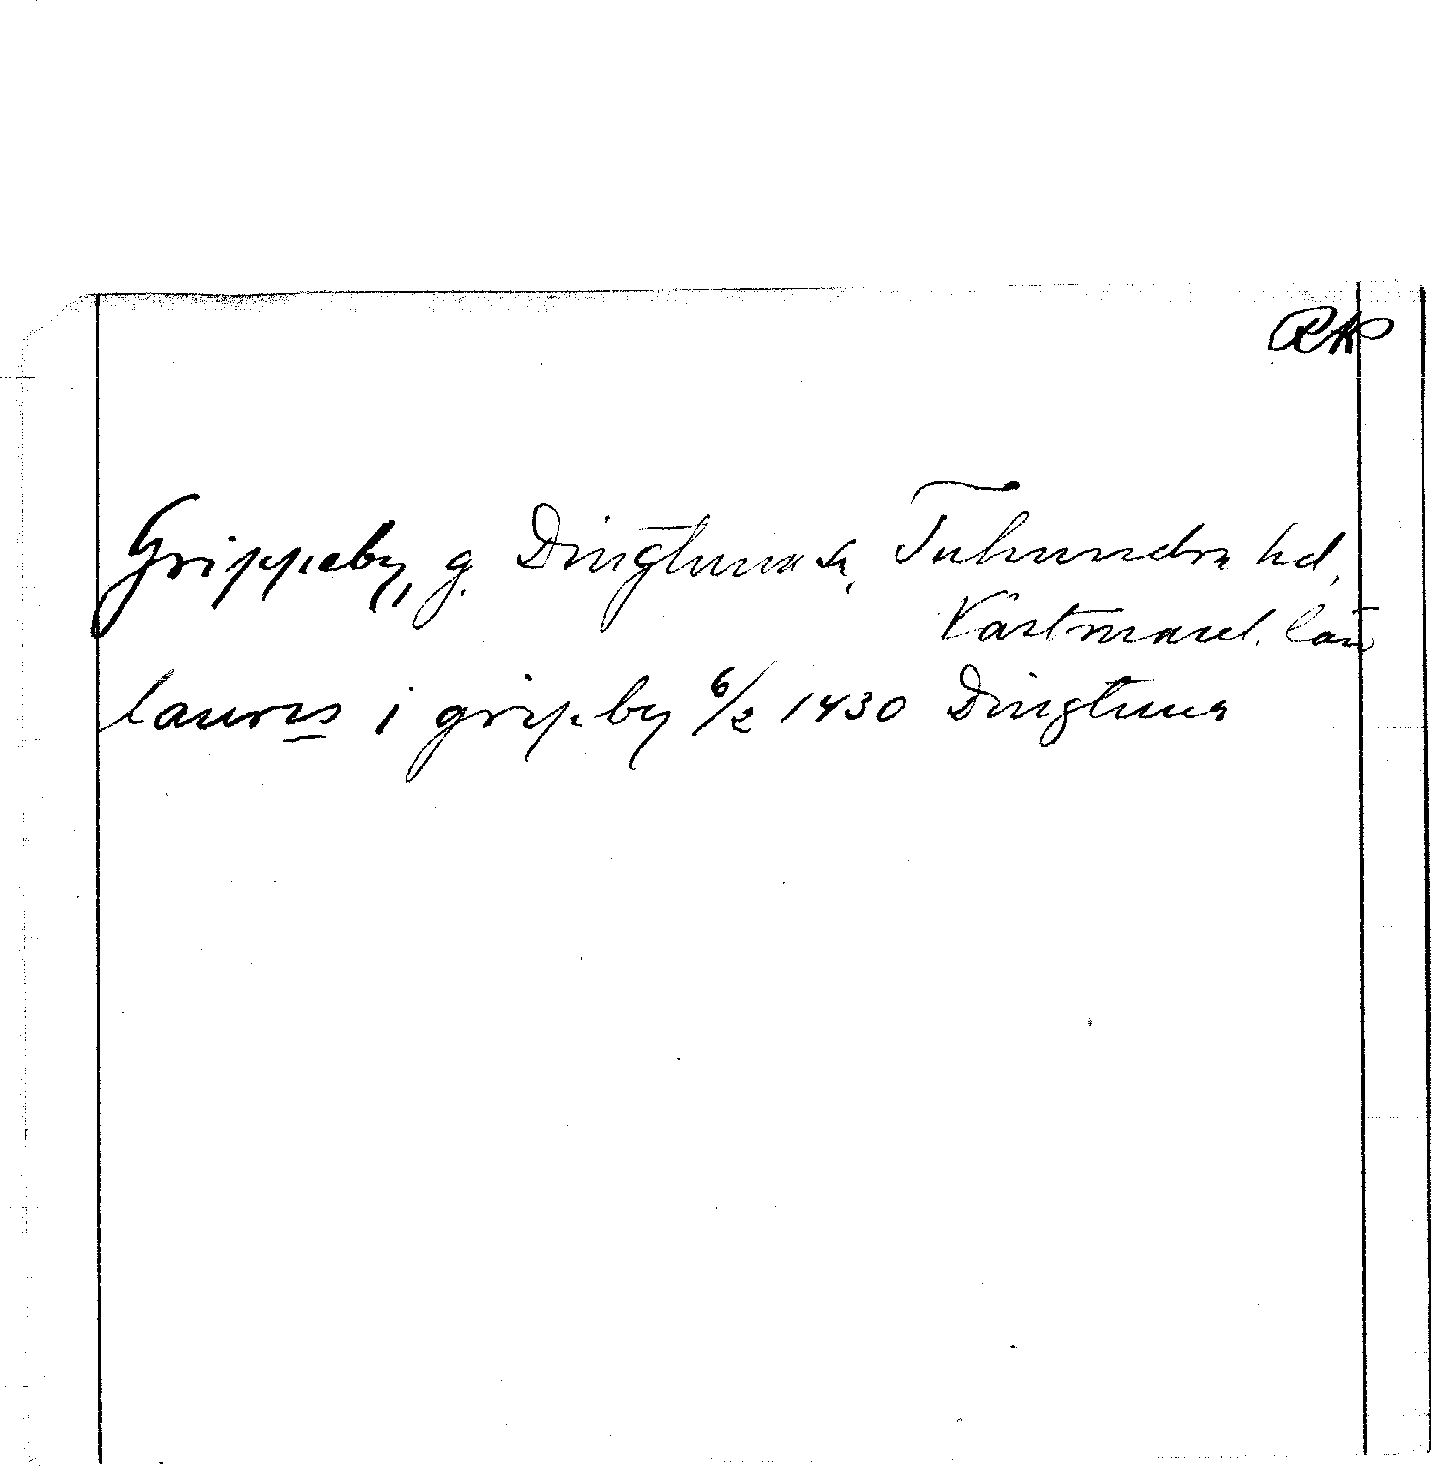 RAP
Grippeby, g. Dingtuna sn, Tuhundra hd,
Västmanl. län
laurꝭ i gripeby 6/2 1430 Dingtuna